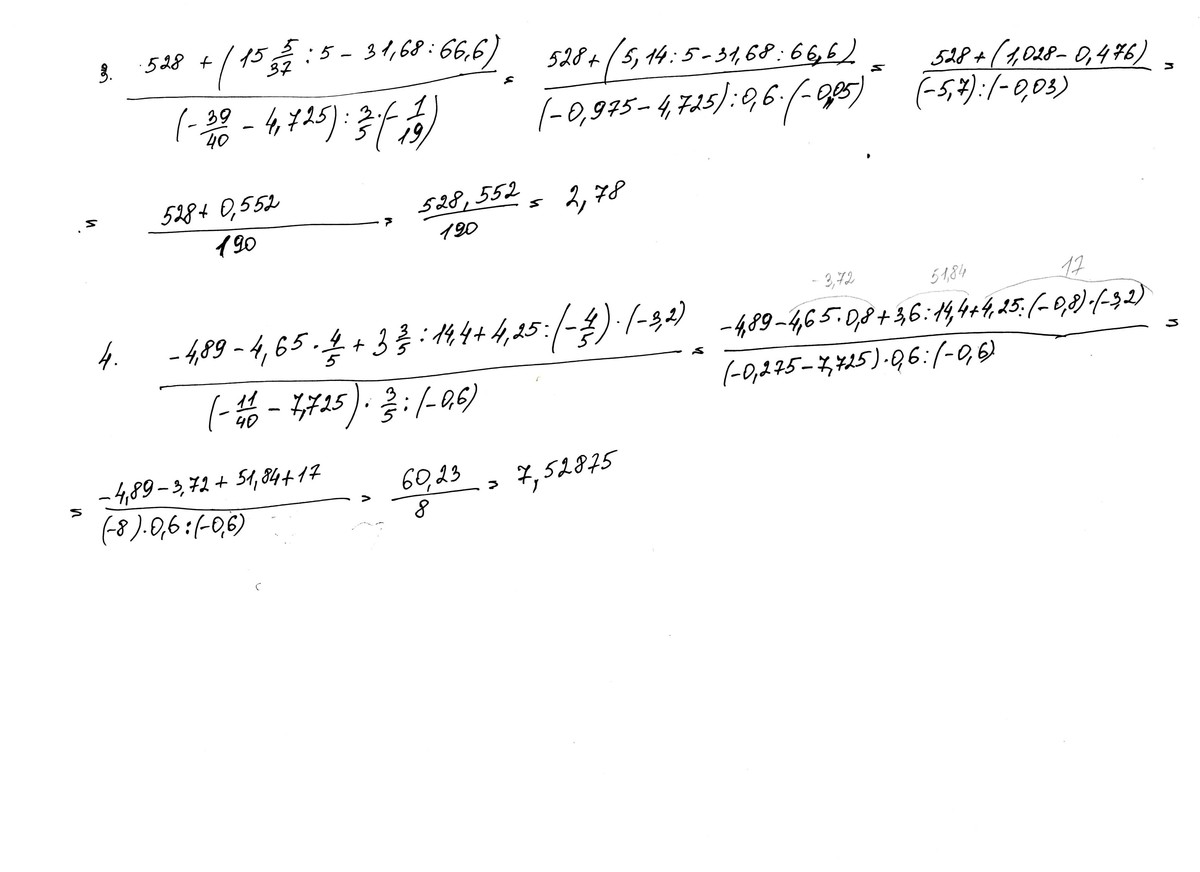 3. (528 + (15 5/37 : 5 - 31,68 : 66,6)) / ((-39/40 - 4,725) : 3/5 · (-1/19)) = (528 + (5,14 : 5 - 31,68 : 66,6)) / ((-0,975 - 4,725) : 0,6 · (-0,05)) = (528 + (1,028 - 0,476)) / ((-5,7) : (-0,03)) =
= (528 + 0,552) / 190 = 528,552 / 190 = 2,78
-3,72 51,84 17
4. (-4,89 - 4,65 · 4/5 + 3 3/5 : 14,4 + 4,25 : (-4/5) · (-3,2)) / ((-11/40 - 7,725) · 3/5 : (-0,6)) = (-4,89 - 4,65 · 0,8 + 3,6 : 14,4 + 4,25 : (-0,8) · (-3,2)) / ((-0,275 - 7,725) · 0,6 : (-0,6)) =
= (-4,89 - 3,72 + 51,84 + 17) / ((-8) · 0,6 : (-0,6)) = 60,23 / 8 = 7,52875